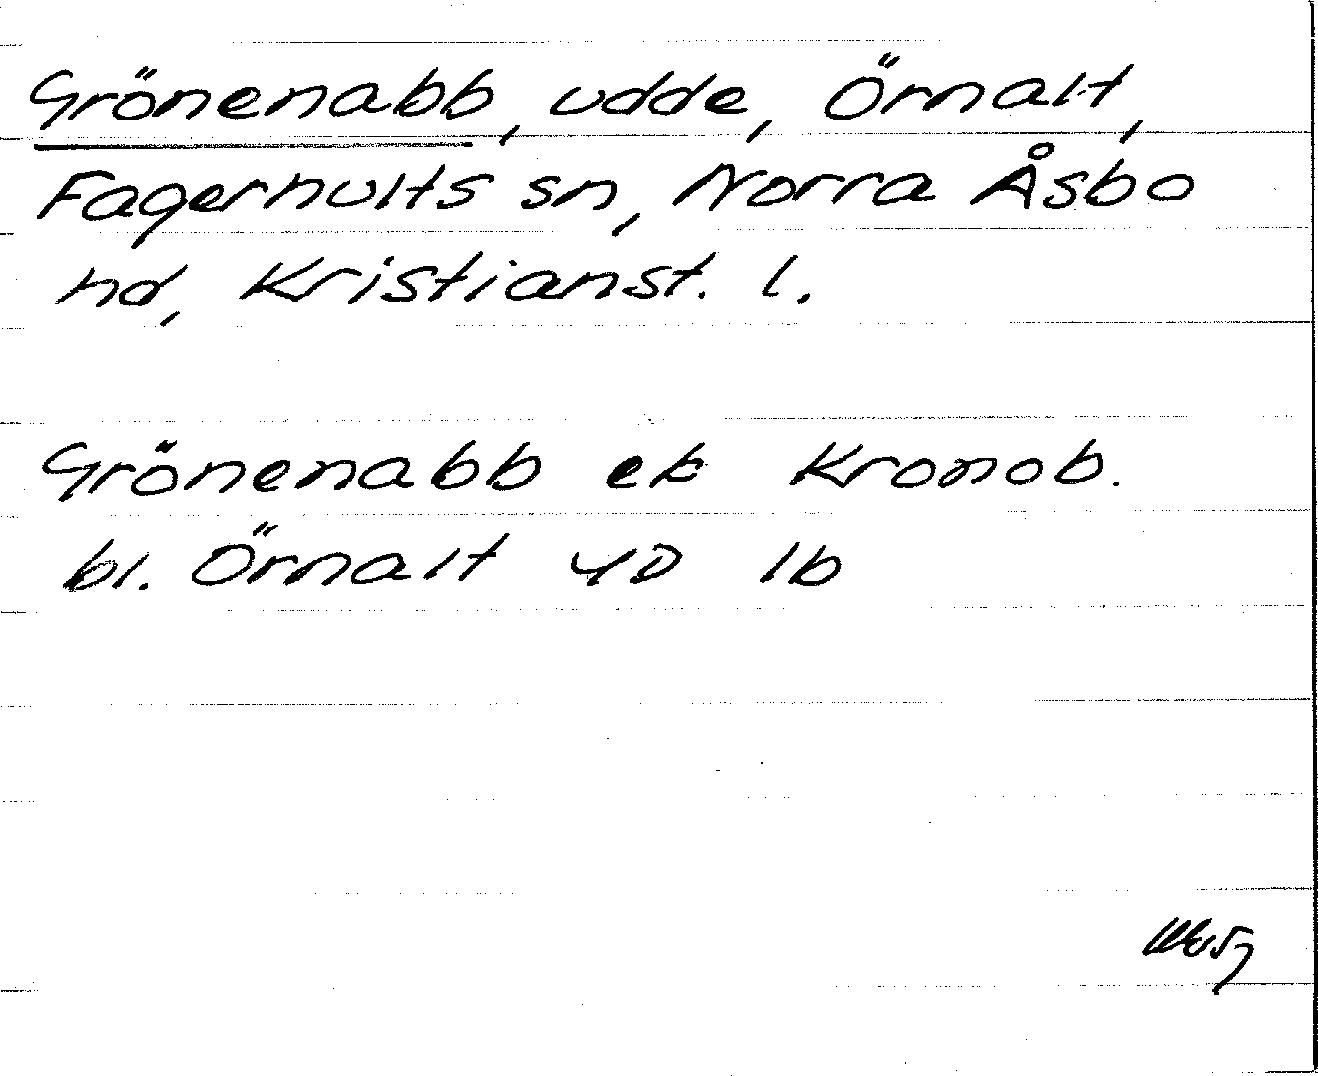 Grönenabb, udde, Örnalt,
Fagerhults sn, Norra Åsbo
hd, Kristianst. l.
Grönenabb ek Kronob.
bl. Örnalt 4D 1b